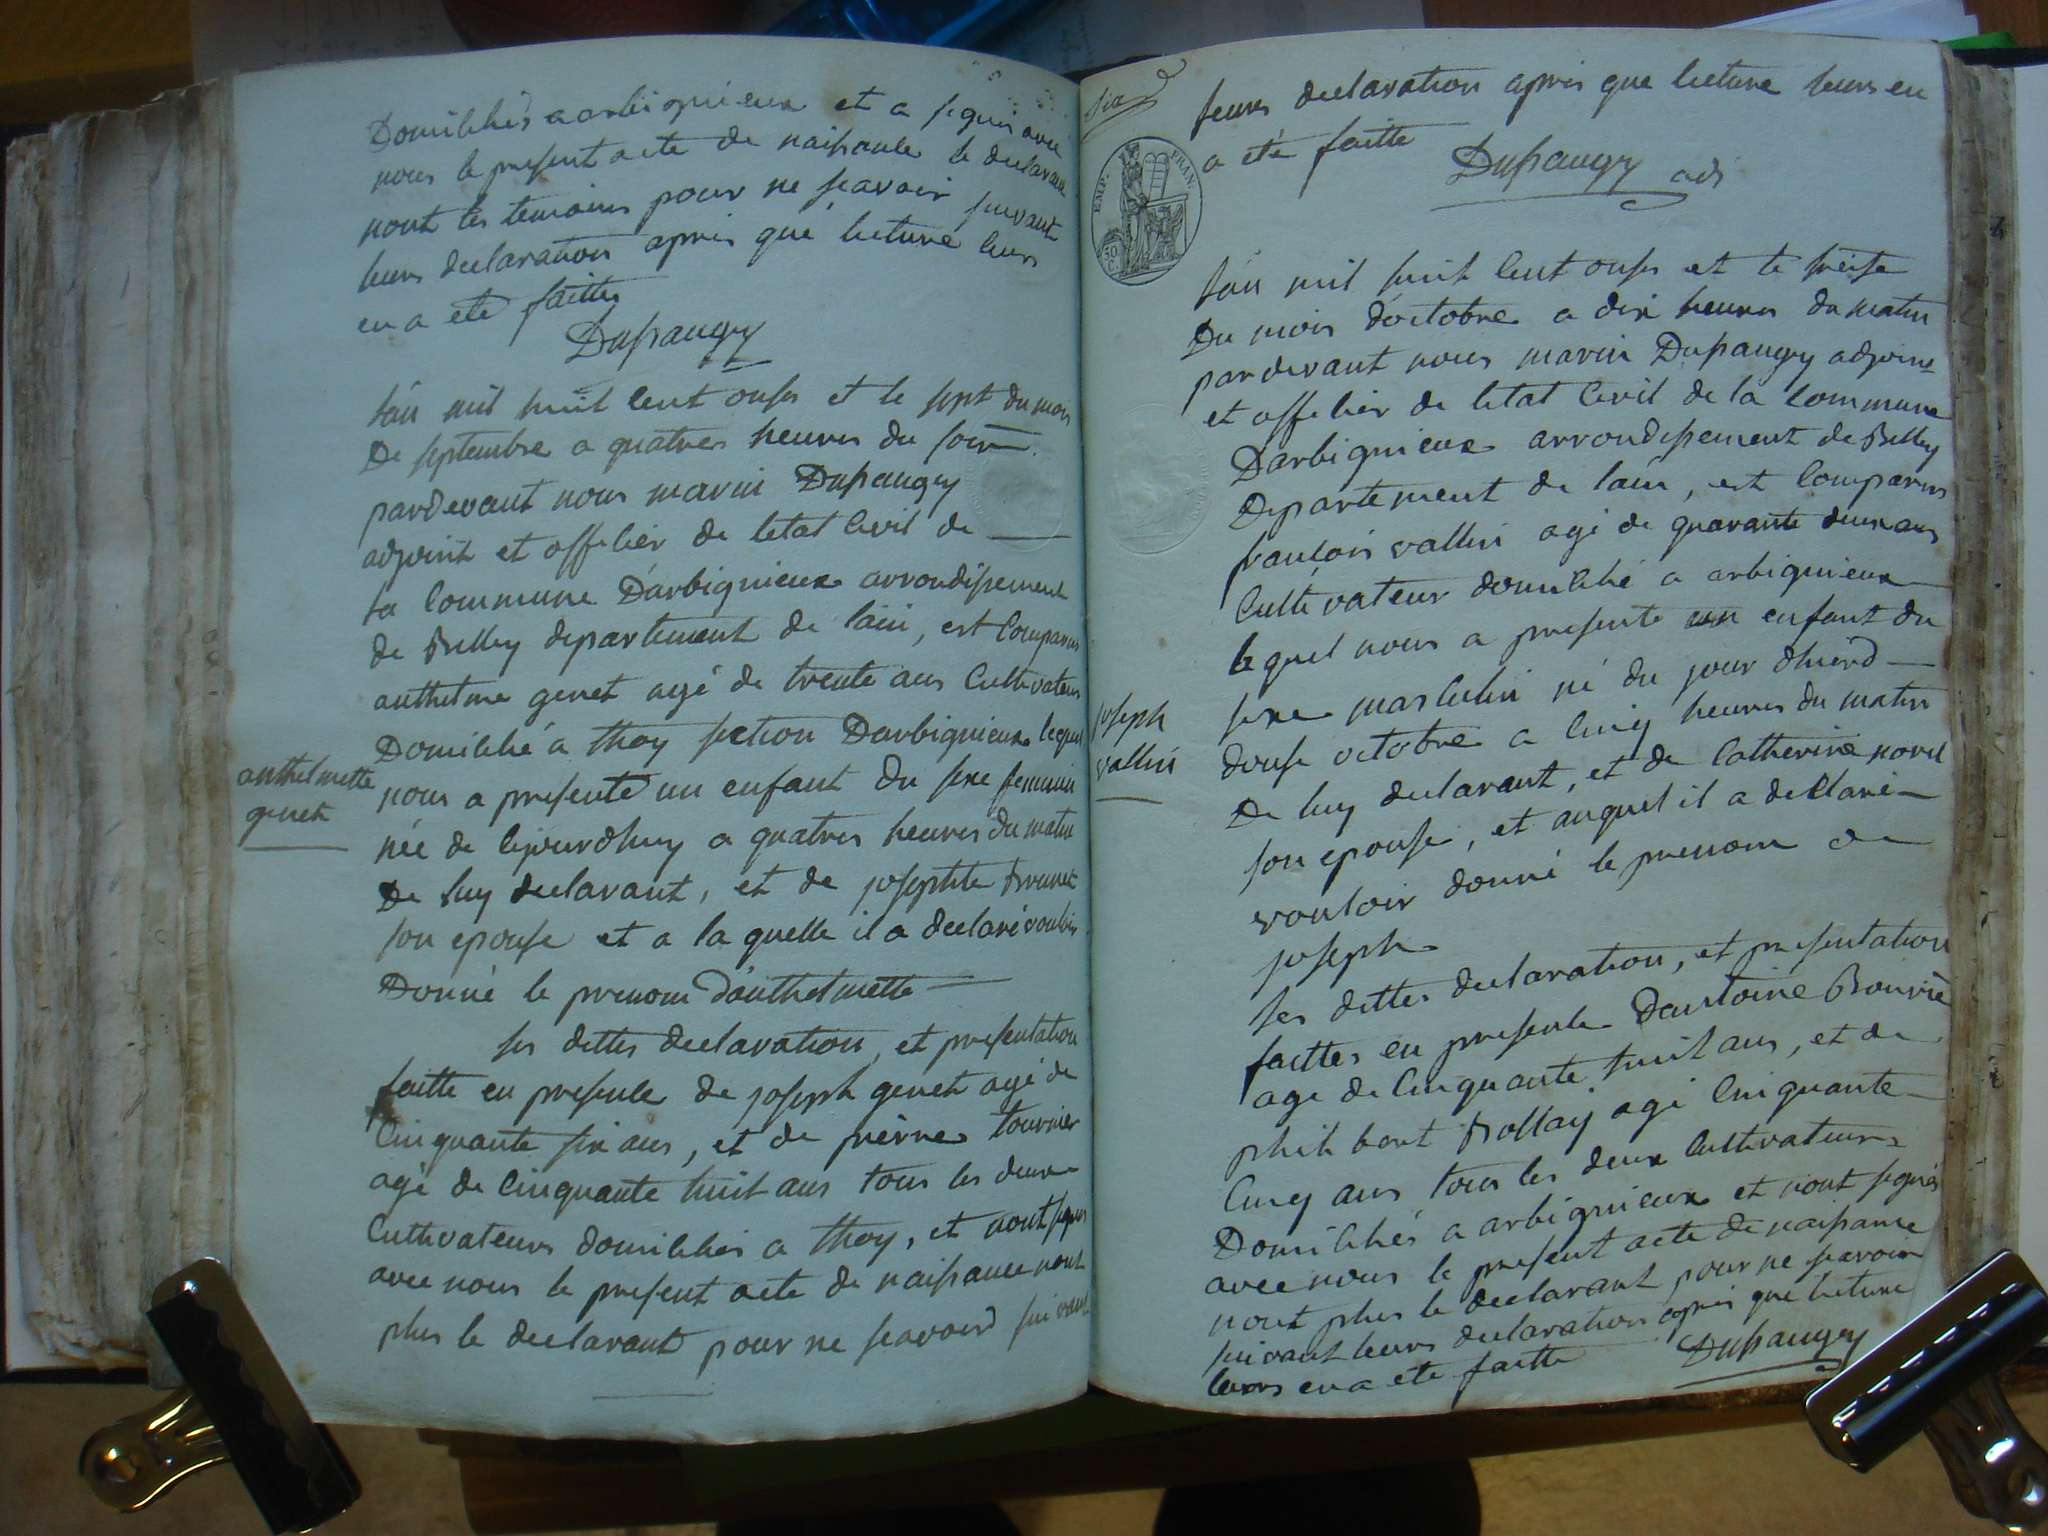 Domiliés a arbignieux et a signés avec
nous le present acte de naissance le declarant
nont les temoins pour ne scavoir suivant
leurs declaration apres que lecture leurs
en a été faittes
Dupaugey
Lan mil huit cent onse et le sept du mois
De septembre a quatres heures du soir
pardevant nous marin Dupaugey
adjoint et officier de letat civil de
la commune Darbignieux arrondissement
de Belley departement de lain, est comparus
anthelme genet agé de trente ans cultivateur
Domilié a thoy section Darbignieux lequel
anthelmette
genet
nous a presenté un enfant du sexe feminin
née de cejourdhuy a quatres heures du matin
De luy declarant, et de josephte Brunet
son epouse et a la quelle il a declaré vouloir
Donné le prenom danthelmette
les dittes declaration, et presentation
faitte en presence de joseph genet agé de
Cinquante six ans, et de pierre tournier
agé de cinquante huit ans tous les deux
Cultivateurs domiliés a thoy, et nont signés
avec nous le present acte de naissance nont
plus le declarant pour ne scavoir suivant
six
EMP. FRAN.
50 C.
leurs declaration apres que lecture leurs en
a été faitte
Dupaugey adj
Lan mil huit cent onse et le treise
Du mois doctobre a dix heures du matin
pardevant nous marin Dupaugey adjoint
et officier de letat civil de la commune
Darbignieux arrondissement de Belley
Departement de lain, est comparus
francois vallin agé de quarante deux ans
Cultivateur domilié a arbignieux
lequel nous a presenté un enfant du
sexe masculin né du jour dhierd
joseph
vallin
douse octobre a cinq heures du matin
De luy declarant, et de Catherine
son epouse, et auquel il a declaré
vouloir donné le prenom de
joseph
les dittes declaration, et presentation
faittes en presence Dantoine
age de cinquante huit ans, et de
philibert agé cinquante
Cinq ans tous les deux cultivateurs
Domiliés a arbignieux et nont signés
avec nous le present acte de naissance
nont plus le declarant pour ne scavoir
suivant leurs declaration apres que lecture
leurs en a été faitte
Dupaugey